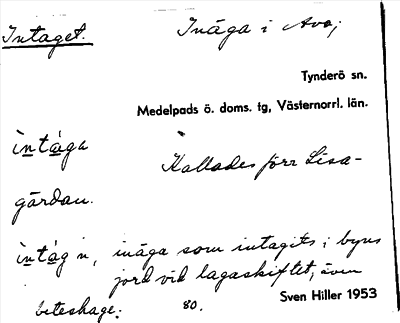 Intaget. Inäga i Ava;
Tynderö sn.
Medelpads ö. doms. tg, Västernorrl. län.
ìntága
Kallades förr Lisa-
gårdan.
ìntág n, inäga som intagits i byns
jord vid lagaskiftet; även
beteshage. 80.
Sven Hiller 1953